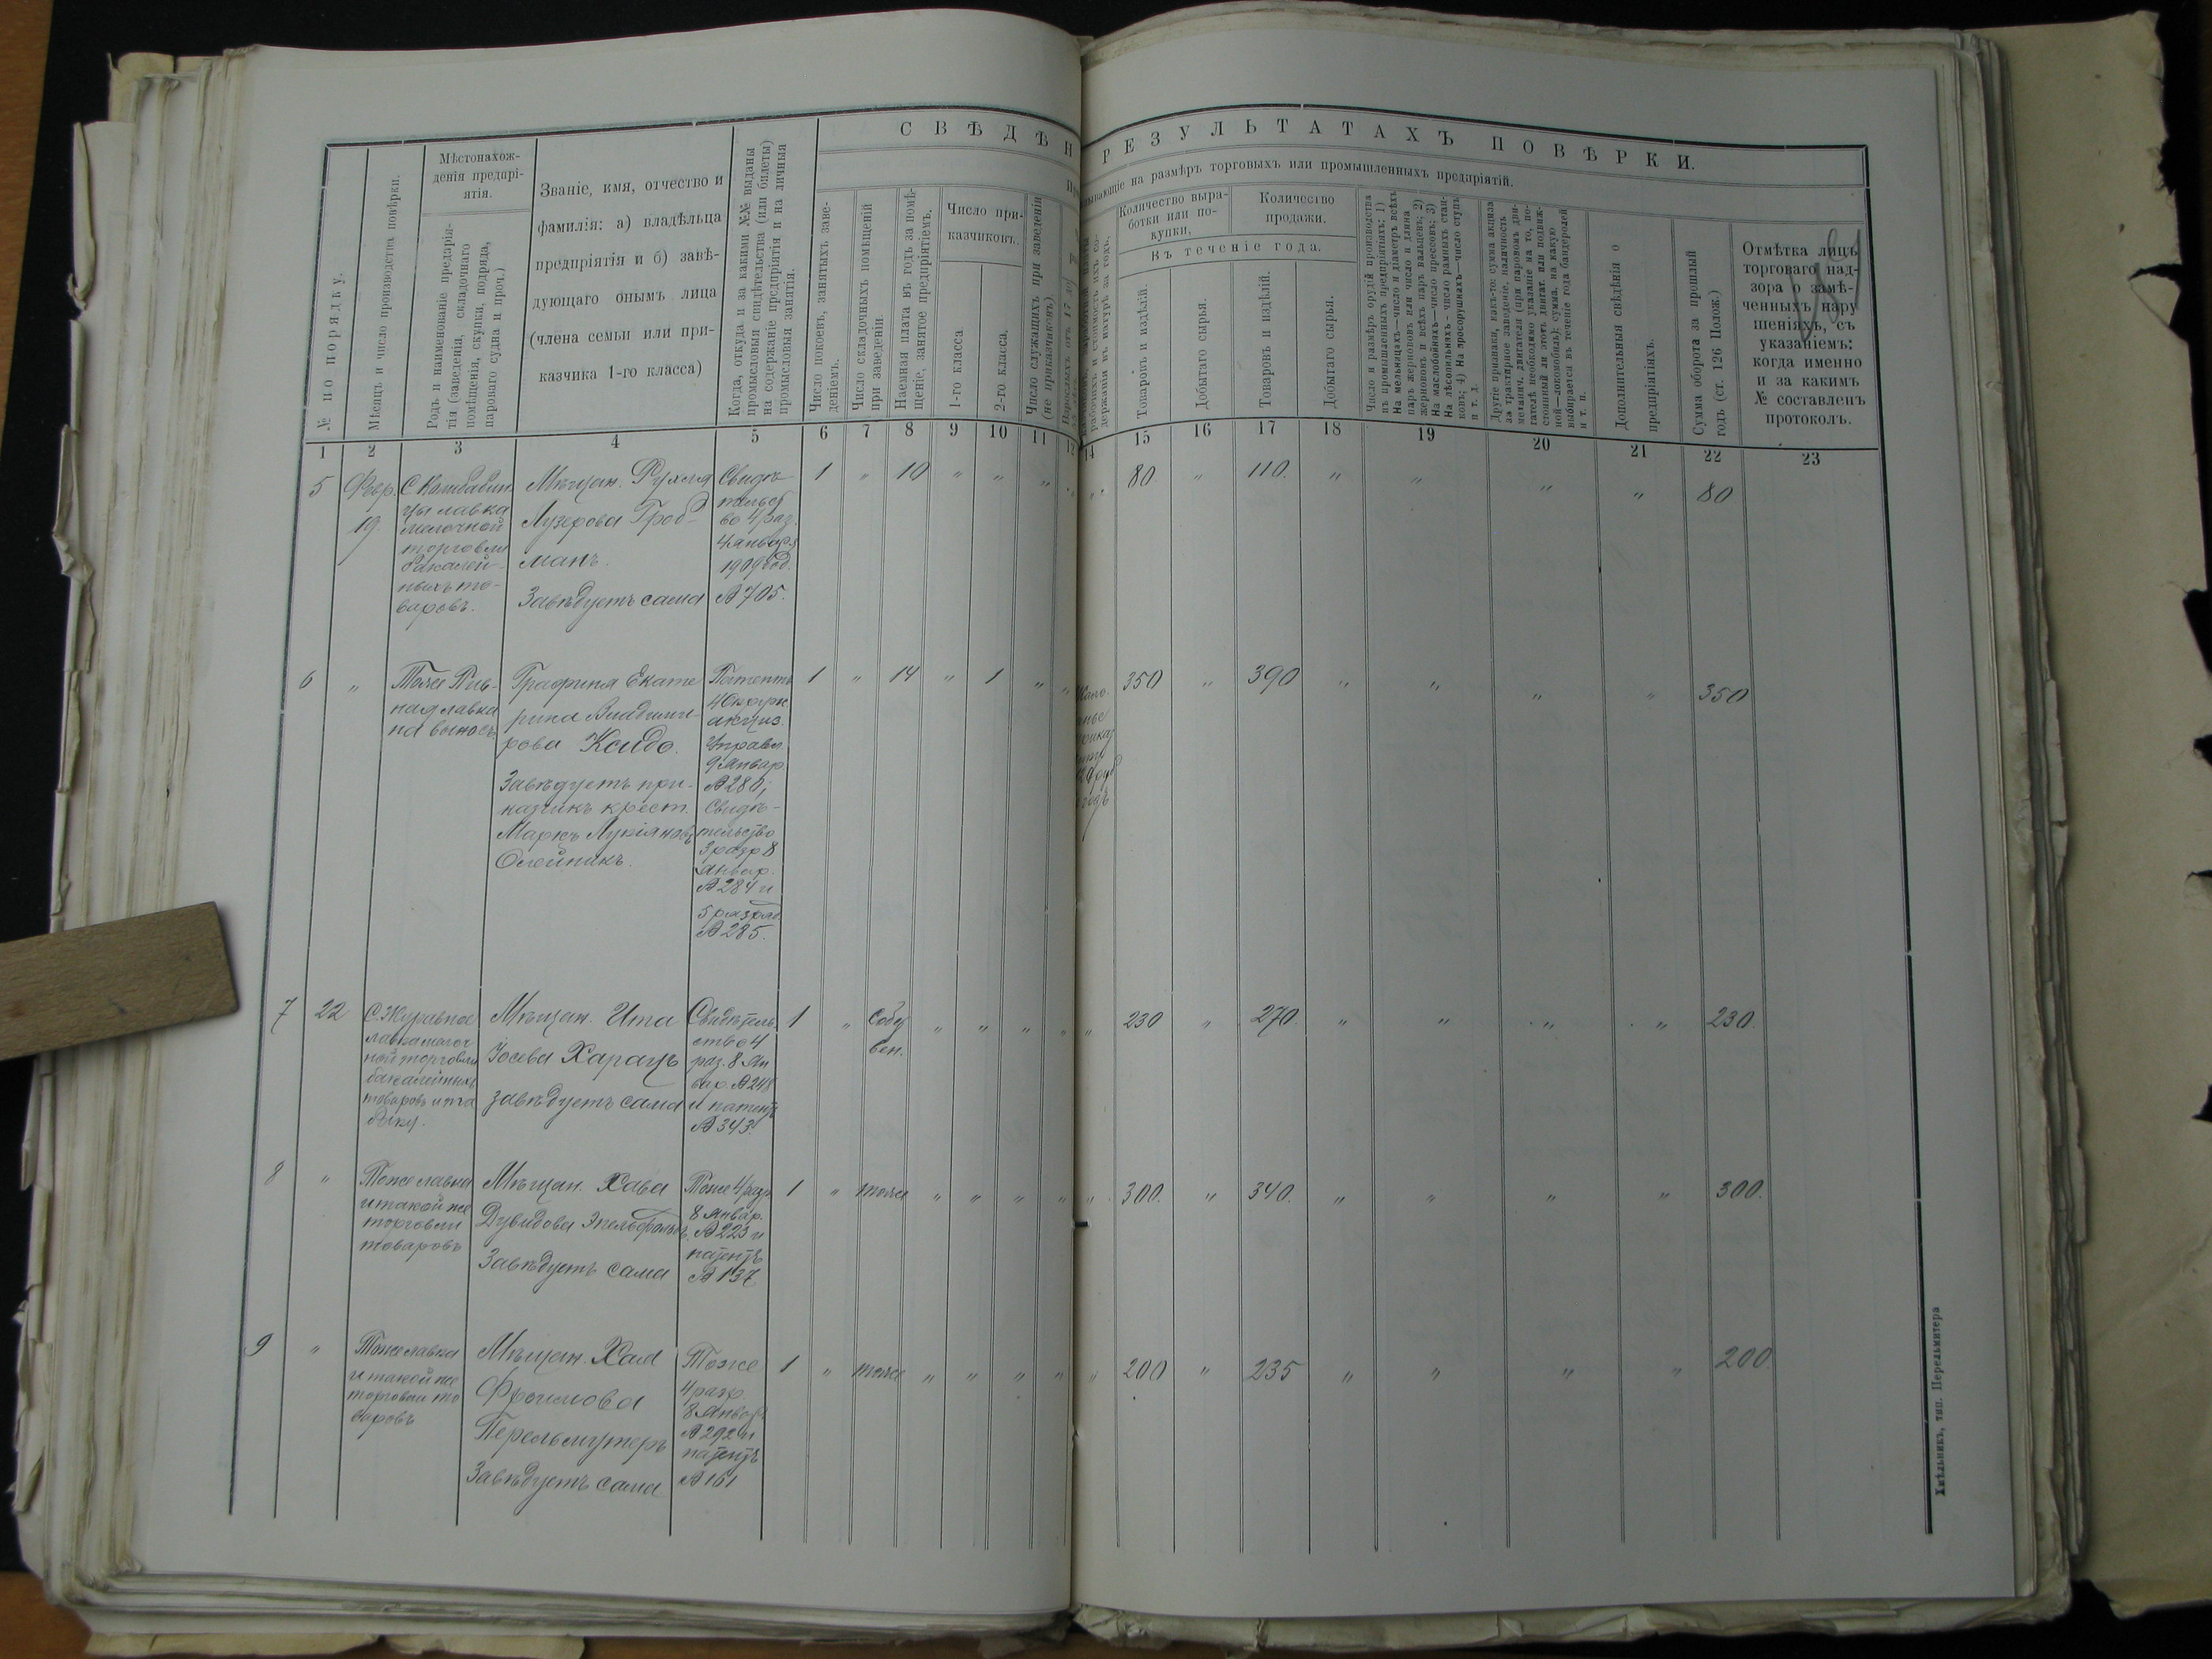 СВѢДѢН
РЕЗУЛЬТАТАХЪ ПОВѢРКИ.
ывающіе на размѣръ торговыхъ или промышленныхъ предпріятій.
№ по порядку.
Мѣсяцъ и число производства повѣрки.
Мѣстонахож-
денія предпрі-
ятія.
Родъ и наименованіе предпрія-
тія (заведенія, складочнаго
помѣщенія, скупки, подряда,
парового судна и проч.)
Званіе, имя, отчество и
фамилія: а) владѣльца
предпріятія и б) завѣ-
дующаго онымъ лица
(члена семьи или при-
казчика 1-го класса)
Когда, откуда и за какими №№ выданы
промысловыя свидѣтельства (или билеты)
на содержаніе предпріятія и на личныя
промысловыя занятія.
Число покоевъ, занятыхъ заве-
деніемъ.
Число складочныхъ помѣщеній
при заведеніи.
Наемная плата въ годъ за помѣ-
щеніе, занятое предпріятіемъ.
Число при-
казчиковъ.
1-го класса.
2-го класса.
Число служащихъ при заведеніи
(не приказчиковъ)
Количество выра-
ботки или по-
купки,
Количество
продажи.
Въ теченіе года.
Товаровъ и издѣлій.
Добытаго сырья.
Товаровъ и издѣлій.
Добытаго сырья.
Число и размѣръ орудій производства
въ промышленныхъ предпріятіяхъ: 1)
На мельницахъ—число и діаметръ всѣхъ
паръ жернововъ или число и длина
жернововъ и всѣхъ паръ вальцевъ; 2)
На маслобойняхъ—число прессовъ; 3)
На лѣсопильняхъ—число рамныхъ стан-
ковъ; 4) На просорушняхъ—число ступъ
и т. д.
Другіе признаки, какъ-то: сумма акциза
за трактирное заведеніе, наличность
механич. двигателя (при паровомъ дви-
гателѣ необходимо указаніе на то, по-
стоянный ли этотъ двигат. или подвиж-
ной—локомобиль); сумма, на какую
выбирается въ теченіе года бандеролей
и т. п.
Дополнительныя свѣдѣнія о
предпріятіяхъ.
Сумма оборота за прошлый
годъ (ст. 126 Полож.)
Отмѣтка лицъ
торговаго над-
зора о замѣ-
ченныхъ нару
шеніяхъ, съ
указаніемъ:
когда именно
и за какимъ
№ составленъ
протоколъ.
1 2 3 4 5 6 7 8 9 10 11 12 14 15 16 17 18 19 20 21 22 23
5 Февр.
19.
цы лавка
мелочной
торговли
бакалей-
ныхъ то-
варовъ.
Мѣщан. Рухля
Лузерова Гроб-
манъ.
Завѣдуетъ сама
Свидѣ-
тельст
во 4 раз.
4 Января
1909 год.
№ 705.
1 „ 10 „ „ „ „ „ 80 „ 110. „ „ „ „ 80
6 „
Тоже Пив-
ная лавка
на выносъ.
Графиня Екате
рина Владими-
рова Кайдо.
Завѣдуетъ при-
казчикъ крест.
Маркъ Лукіяновъ
Олейникъ.
Патентъ
4 Округ
акциз.
Управл.
9 Январ.
№ 280;
Свидѣ-
тельство
3 разр 8
Январ.
№ 284 и
5 разряд.
№ 285.
1 „ 14 „ 1 „ „ 350 „ 390 „ „ „ „ 350
7 22
С. Журавное
лавка мелоч
ной торговли
бакалейныхъ
товаровъ и та
баку.
Мѣщан. Ита
Іосева Харацъ
завѣдуетъ сама
Свидѣтель
ство 4
раз. 8 Ян
вар. № 248
и патентъ
№ 343.
1 „ Собс
вен. „ „ „ „ „ 230 „ 270. „ „ „ „ 230.
8 „
Тоже лавка
и такой же
торговли
товаровъ
Мѣщан. Хава
Дувидова
Завѣдуетъ сама
Тоже 4 разр
8 Январ.
№ 223 и
патентъ
№ 137
1 „ тоже „ „ „ „ „ 300. „ 340. „ „ „ „ 300.
9 „
Тоже лавка
и такой же
торговли то
варовъ
Мѣщан. Хая
Фроимова
Перельмутеръ
Завѣдуетъ сама
Тоже
4 разр.
8 Январ
№ 292 и
патентъ
№ 161
1 „ тоже „ „ „ „ „ 200 „ 235 „ „ „ „ 200.
Хмѣльникъ, тип. Перельмитера